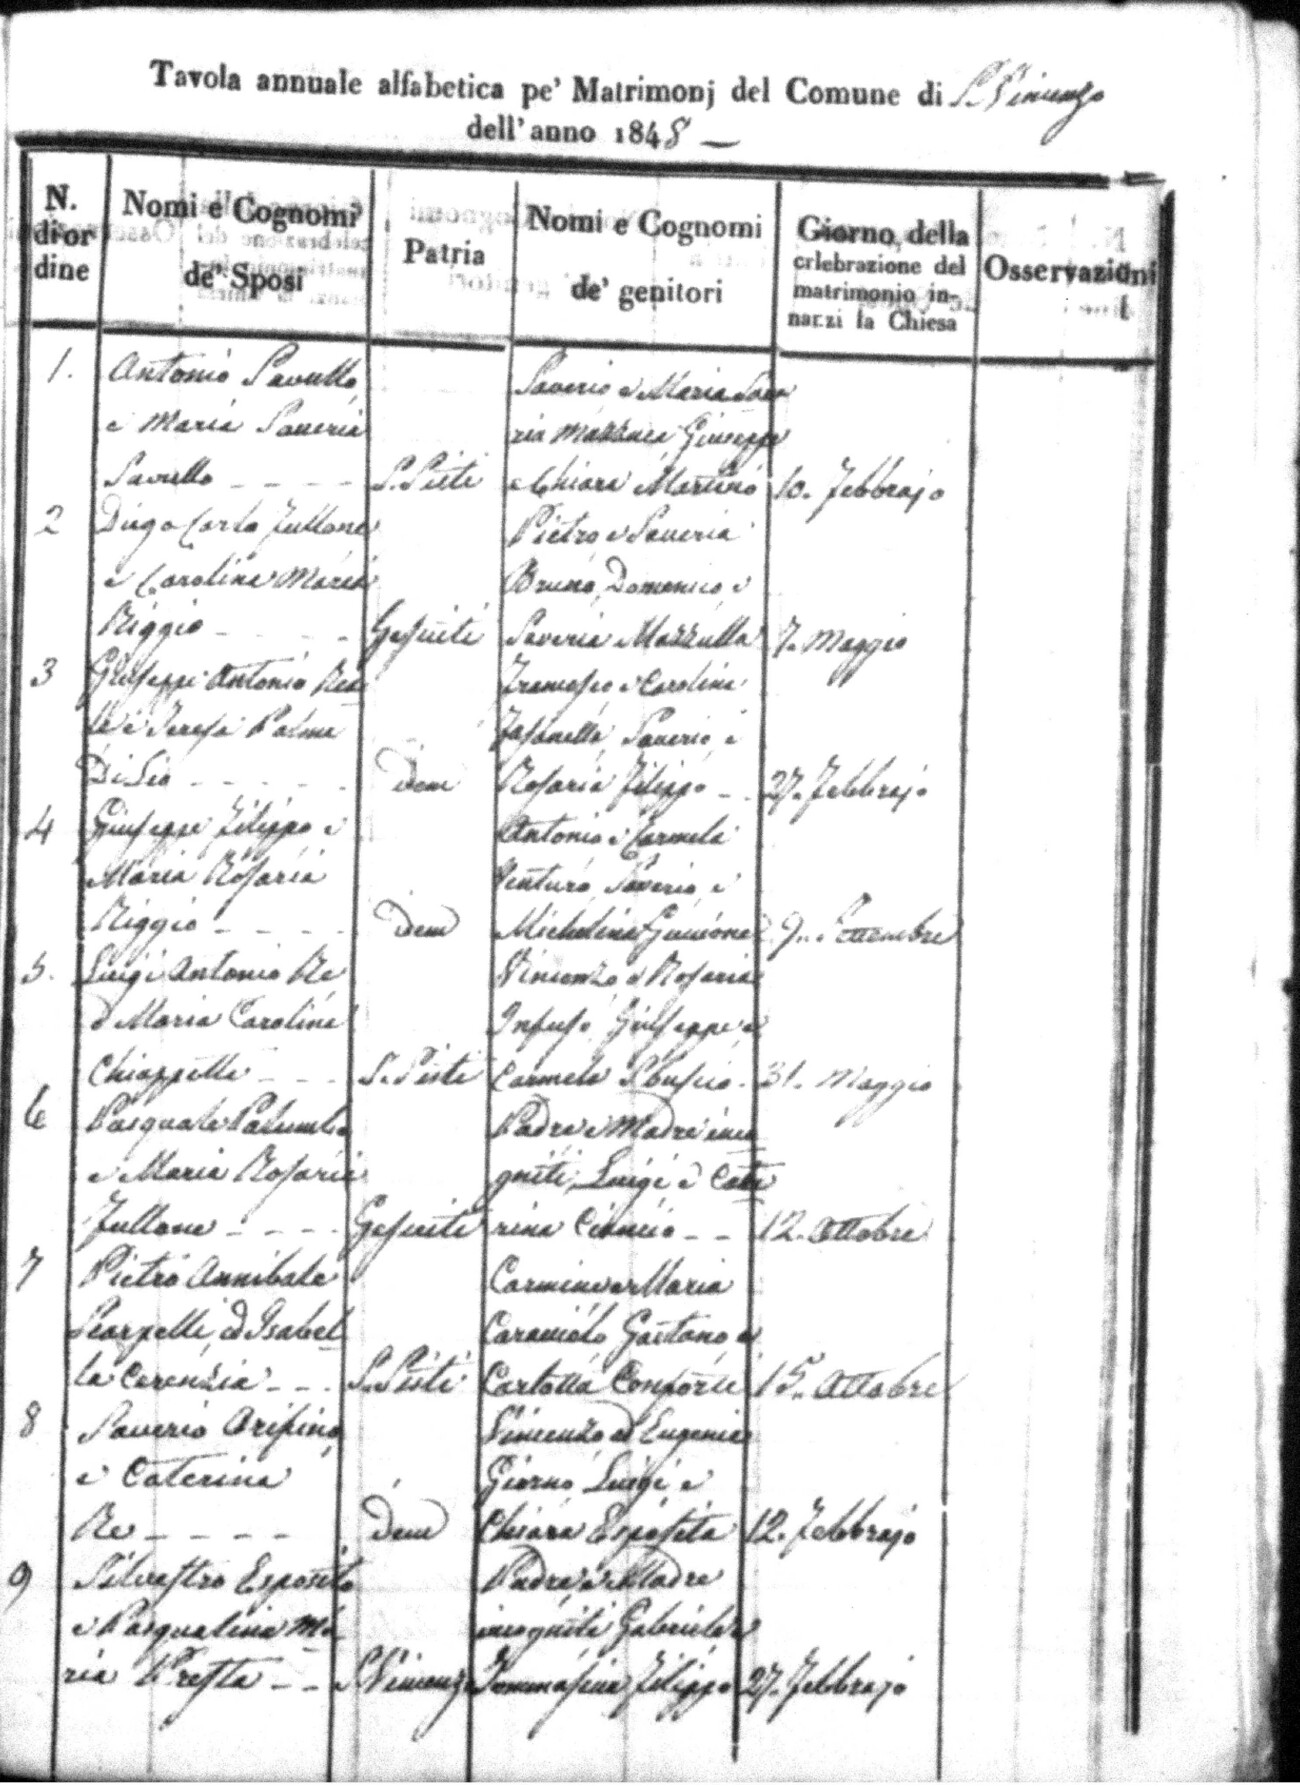 Tavola annuale alfabetica pe' Matrimonj del Comune di S. Vincenzo
dell'anno 1848 —
N. di or dine
Nomi e Cognomi de' Sposi
Patria
Nomi e Cognomi de' genitori
Giorno della crlebrazione del matrimonio in-narzi la Chiesa
Osservazioni
1. Antonio Savullo Saverio e Maria Save
e Maria Saveria ria Mazzuca Giuseppe
Savullo - - - - S. Sisti e Chiara Martino 10. Febbrajo
2 Diego Carlo Fullone Pietro e Saveria
e Carolina Maria Bruno, Domenico, e
Riggio - - - - Gesuiti Saveria Mazzulla 7. Maggio
3 Giuseppe Antonio Francesco e Carolina
e Teresa Palma Saverio, e
Di Leo - - - - - Idem Rosaria Filippo - - 27. Febbrajo
4 Giuseppe Filippo e Antonio e Carmela
Maria Rosaria Ventura, Saverio, e
Riggio - - - - Idem Michelina 9. Settembre
5. Luigi Antonio Re Vincenzo e Rosaria
e Maria Carolina Infuso, Giuseppe e
Chiappetta - - - S. Sisti Carmela 31. Maggio
6 Pasquale Palumbo Padre e Madre inco
e Maria Rosaria gniti, Luigi e Cate
Fullone - - - - Gesuiti rina Ciancio - - 12. Ottobre
7 Pietro Annibale Carmine e Maria
Scarpelli, ed Isabel Gaetano, e
la Cerenzia - - - S. Sisti Carlotta Conforti 15. Ottobre
8 Saverio Vincenzo ed Eugenia
e Caterina Giorno, Luigi e
Re - - - - - Idem Chiara Esposita 12. Febbrajo
9 Silvestro Esposito Padre e Madre
e Pasqualina Ma incogniti Gabriele e
ria Presta - - S. Vincenzo Tommasina Filippo 27. Febbrajo